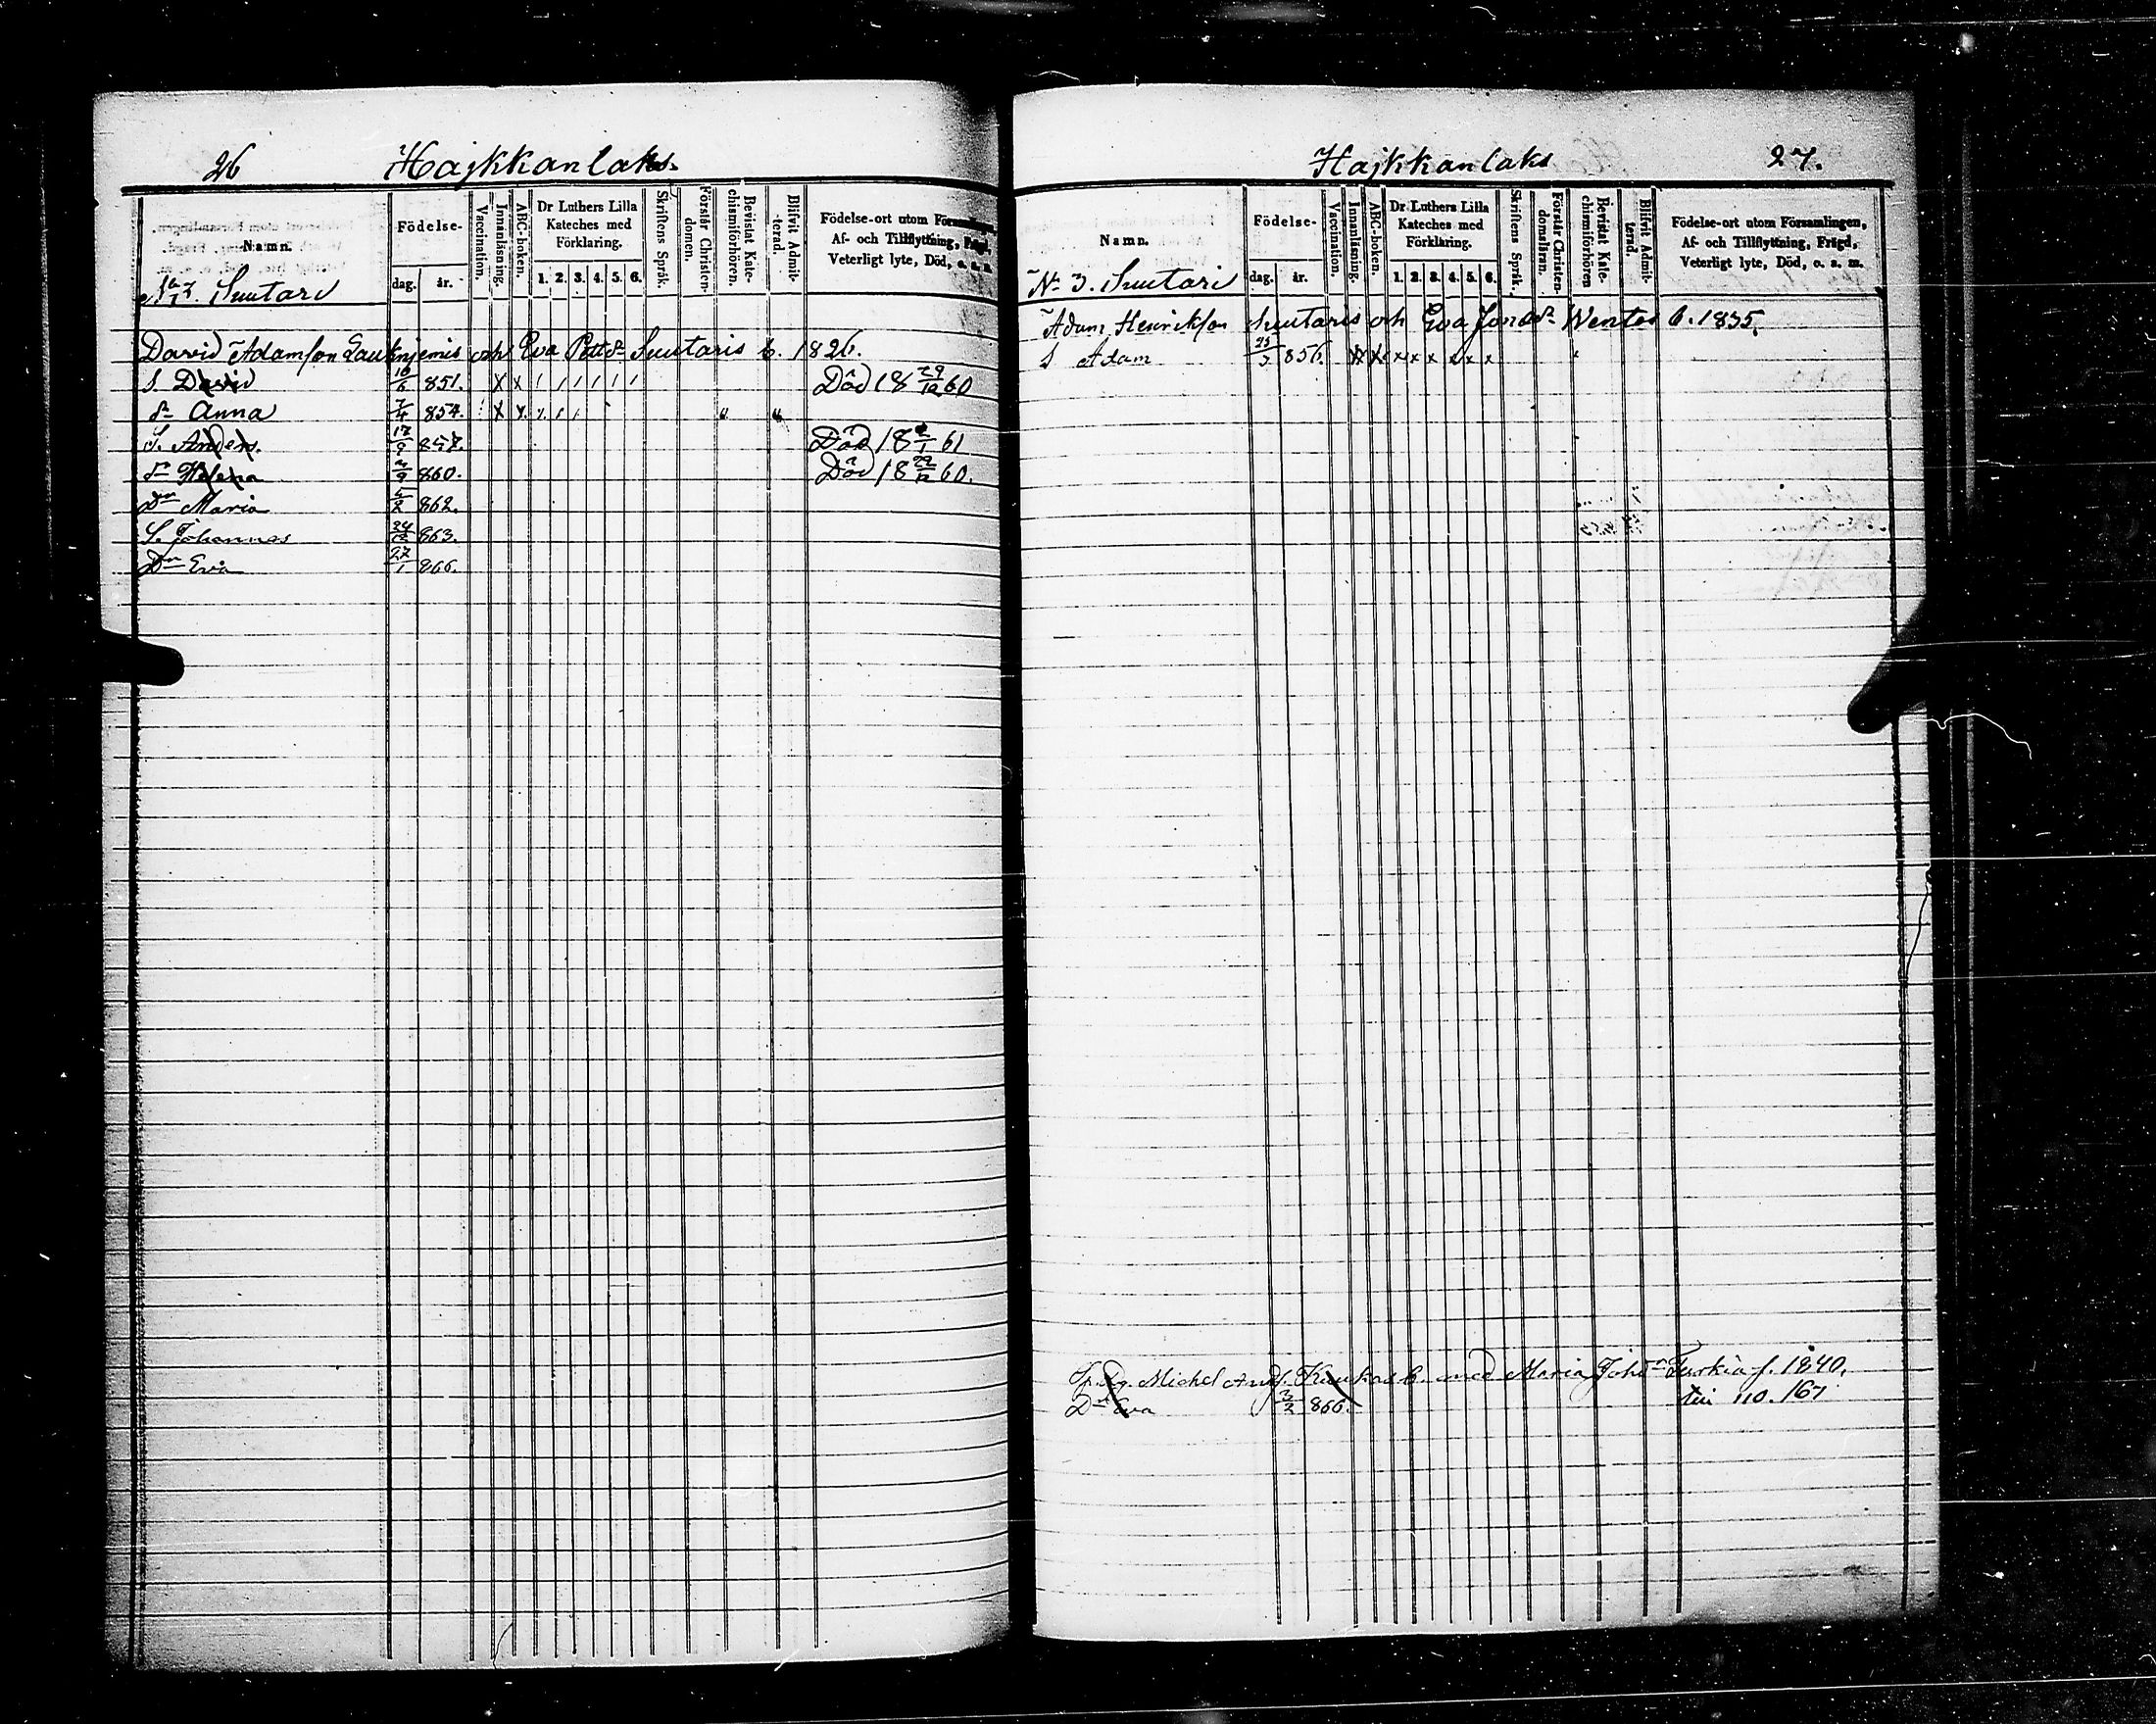 26 Hajkkanlaks.
Namn.
Födelse-
dag. år.
Vaccination.
Innanläsning.
ABC-boken.
Dr Luthers Lilla Kateches med Förklaring.
1. 2. 3. 4. 5. 6.
Skriftens Språk.
Förstår Christen-domen.
Bevistat Kate-chismiförhören.
Blifvit Admit-terad.
Födelse-ort utom Församlingen,
Af- och Tillflyttning, Frägd,
Veterligt lyte, Död, o. s. m.
Suutari
David Adamsson och Eva Pett dr Suutaris b. 1826.
S. David 16/6 851. X x / / / / / / Död 18 29/12 60
dr Anna 7/4 854. X x
S. Anders. 17/9 857. Död 18 1 61
dr Helena 9 860. Död 18 29/12 60.
Dr Maria 2 862.
S. Johannes 24/12 863.
Dr Eva 27/1 866.
Hajkkanlaks 27.
Namn.
Födelse-
dag. år.
Vaccination.
Innanläsning.
ABC-boken.
Dr Luthers Lilla Kateches med Förklaring.
1. 2. 3. 4. 5. 6.
Skriftens Språk.
Förstår Christen-domsläran.
Bevistat Kate-chismiförhören
Blifvit Admit-terad.
Födelse-ort utom Församlingen,
Af- och Tillflyttning, Frägd,
Veterligt lyte, Död, o. s. m.
No 3. Suutari
Adam Henriksson Suutaris och Eva Jonas dr Wentos b. 1835.
S Adam 25/3 856. x x x x x x x x
Michel And. med Maria Joh dr f. 1840.
Dr Eva 3/2 866. 110. 167.